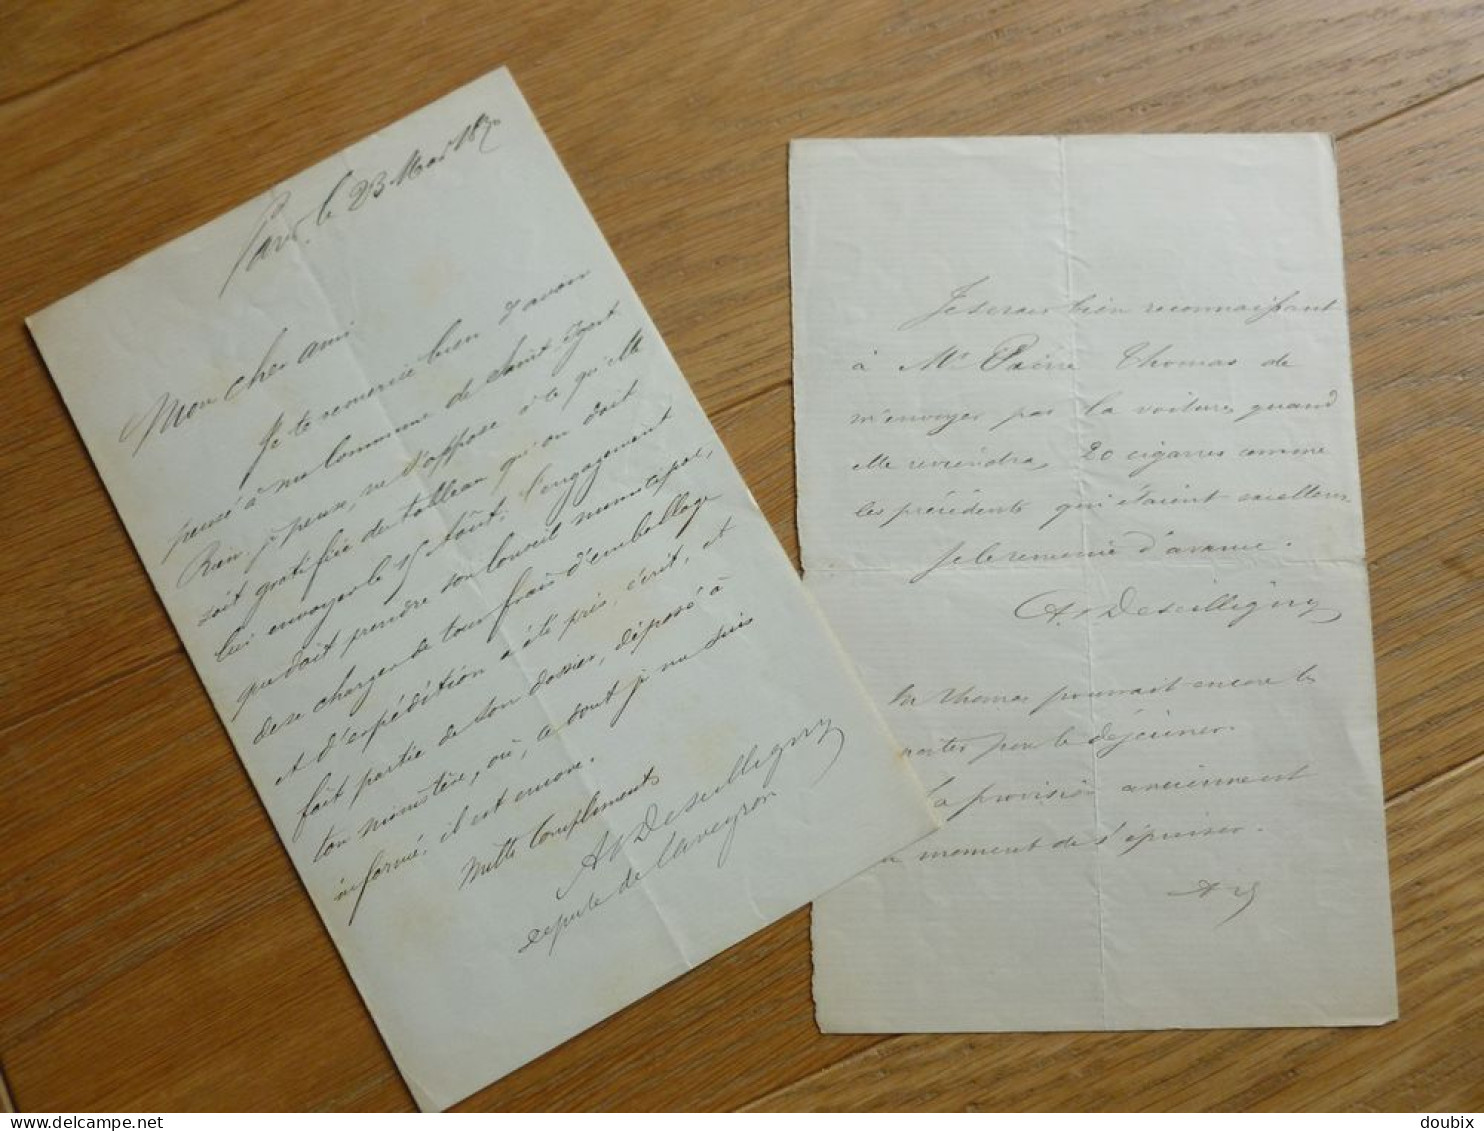 Paris le 23 Mai 1870
Mon cher ami
Je te remercie bien d'avoir
pensé à ma Commune de Saint
Rien, je pense, ne s'oppose à ce qu'elle
soit gratifiée du tableau qu'on doit
lui envoyer le 15 Août; l'engagement
que doit prendre son Conseil municipal,
de se charger de tous frais d'emballage
et d'expédition a été pris, écrit, et
fait partie de son dossier, déposé à
ton ministère, où, à dont je me suis
informé, il est encore.
Mille Compliments
A Deseilligny
député de l'aveyron
Je serais bien reconnaissant
à Mr Pierre Thomas de
m'envoyer par la voiture, quand
elle reviendra, 20 cigarres comme
les précédents qui étaient excellents
Je le remercie d'avance.
A. Deseilligny
Mr Thomas pourrait encore les
porter pour le déjeuner.
la provision ancienne est
au moment de s'épuiser.
A D
www.delcampe.net
doubix